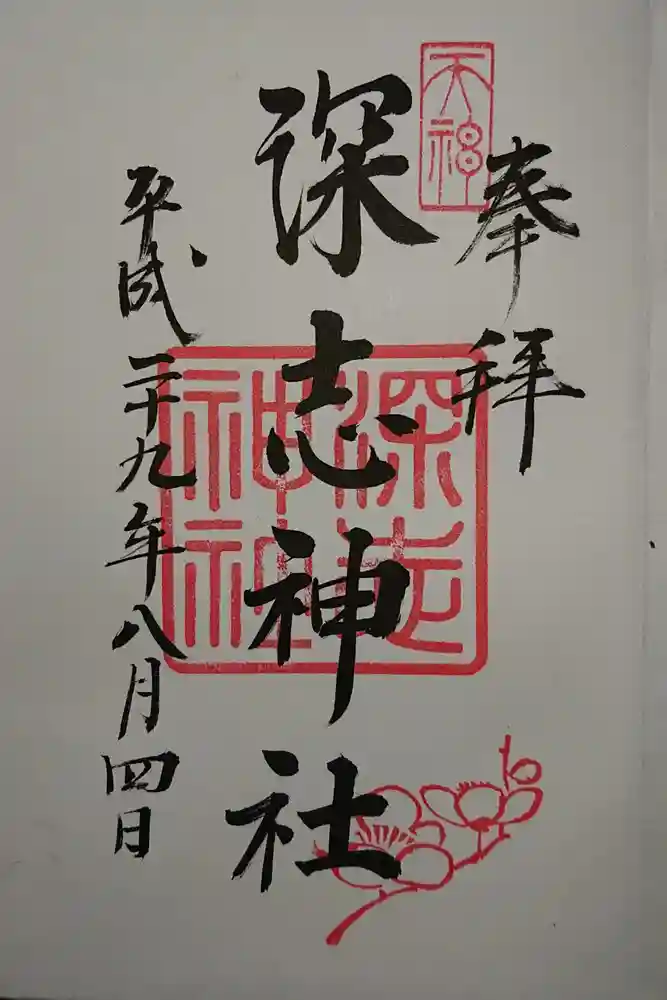 天神
奉拝
深志神社
深志神社
平成二十九年八月四日